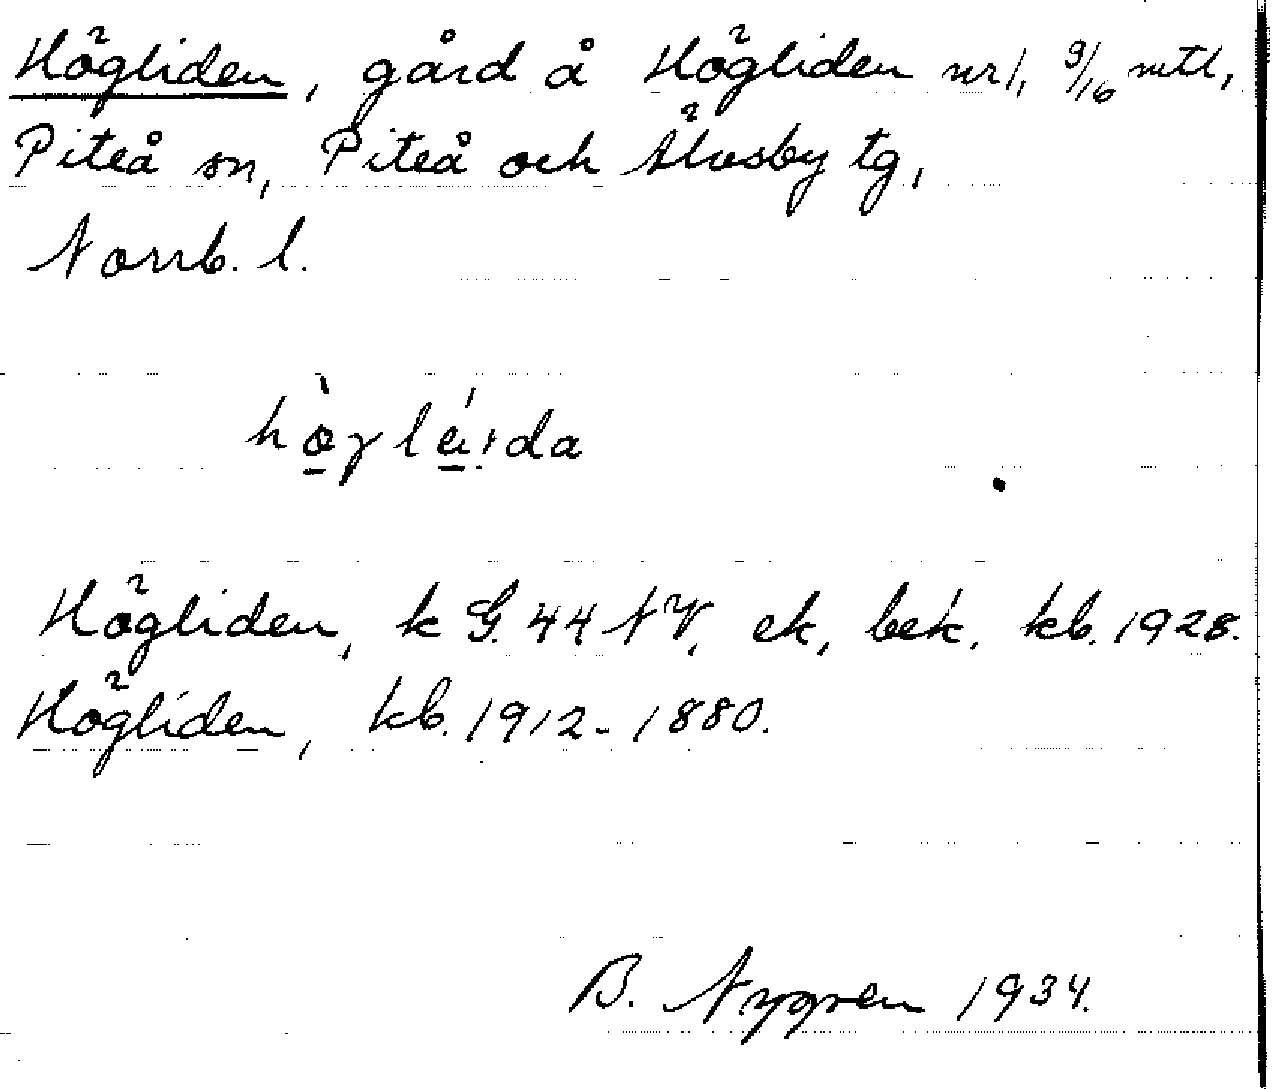 Högliden, gård å Högliden nr 1, 9/16 mtl,
Piteå sn, Piteå och Älvsby tg,
Norrb. l.
Högliden, k G. 44 NV, ek, bek, kb. 1928.
Högliden, kb. 1912-1880.
B. Nygren 1934.